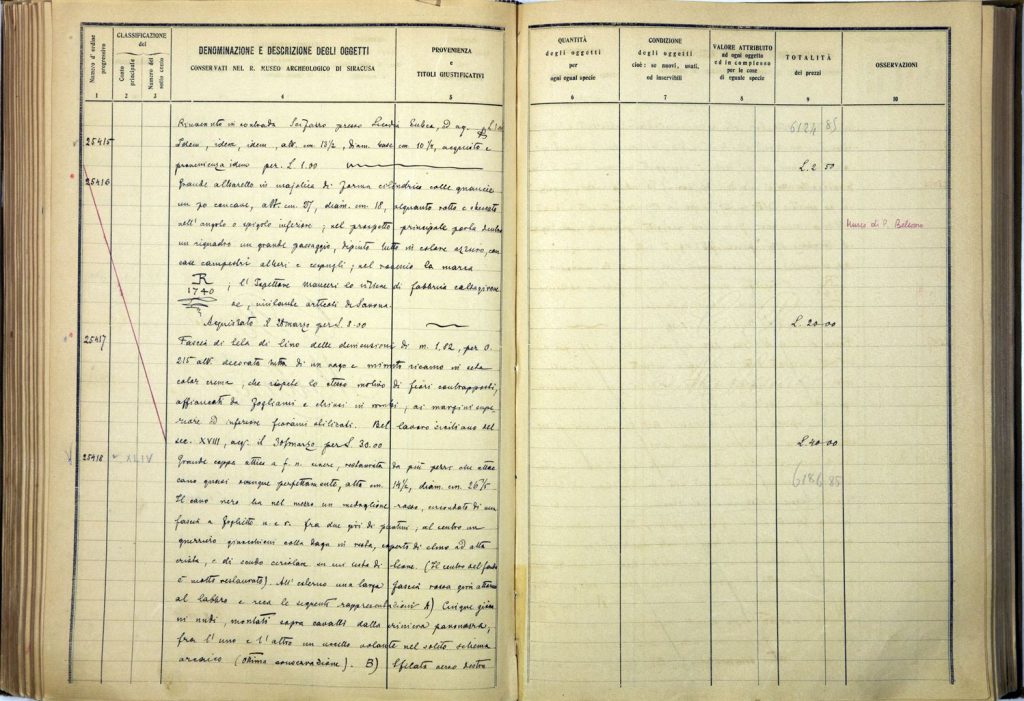 Numero d'ordine progressivo
CLASSIFICAZIONE del
Conto principale
Numero del sotto conto
DENOMINAZIONE E DESCRIZIONE DEGLI OGGETTI
CONSERVATI NEL R. MUSEO ARCHEOLOGICO DI SIRACUSA
PROVENIENZA
e
TITOLI GIUSTIFICATIVI
1 2 3 4 5
Rinvenuto in contrada presso Licodia Eubea, ed aq.
25415
Idem, idem, idem, alt. cm. 13½, diam. base cm 10½, acquisto e
provenienza idem per L. 1.00
25416
Grande albarello in majolica di forma cilindrica colle guancie
un po concave, alt. cm. 27, diam. cm. 18, alquanto rotto e
nell'angolo o spigolo inferiore; nel prospetto principale porta dentro
un riquadro un grande paesaggio, dipinto tutto in colore azzurro, con
case campestri alberi e cespugli; nel rovescio la marca
R
1740
; l'Ispettore lo ritiene di fabbrica caltagirone
se, articoli di Savona.
Acquistato il 28 marzo per L. 8.00
25417
Fascia di tela di lino delle dimensioni di m. 1.82, per 0.
215 alt. decorata tutta di un vago e minuto ricamo in seta
color crema, che ripete lo stesso motivo di fiori contrapposti,
affiancati da fogliami e chiusi in ; ai margini supe
riore ed inferiore fiorami stilizzati. Bel lavoro siciliano del
sec. XVIII, acq. il 30 marzo per L. 30.00
25418
XLIV
Grande coppa attica a f. n. restaurata da più pezzi che attac
cano quasi ovunque perfettamente, alta cm. 14½, diam. cm. 26
Il cavo nero ha nel mezzo un medaglione rosso, circondato di una
fascia a fogliette n. e r. fra due giri di puntini, al centro un
guerriero colla daga in resta, coperto di elmo ad alta
crista, e di scudo circolare in cui testa di leone. (Il centro del fondo
è molto restaurato). All'esterno una larga fascia rossa gira attorno
al labbro e reca le seguenti rappresentazioni A) Cinque giova
ni nudi, montati sopra cavalli dalla criniera paonazza,
fra l'uno e l'altro un uccello volante nel solito schema
arcaico (ottima conservazione). B) Sfilata verso destra
QUANTITÀ
degli oggetti
per
ogni egual specie
CONDIZIONE
degli oggetti
cioè: se nuovi, usati,
ed inservibili
VALORE ATTRIBUITO
ad ogni oggetto
ed in complesso
per le cose
di eguale specie
TOTALITÀ
dei prezzi
OSSERVAZIONI
6 7 8 9 10
6124 85
L. 2 50
Museo di P. Bellomo
L. 20 00
L. 40 00
6186 85